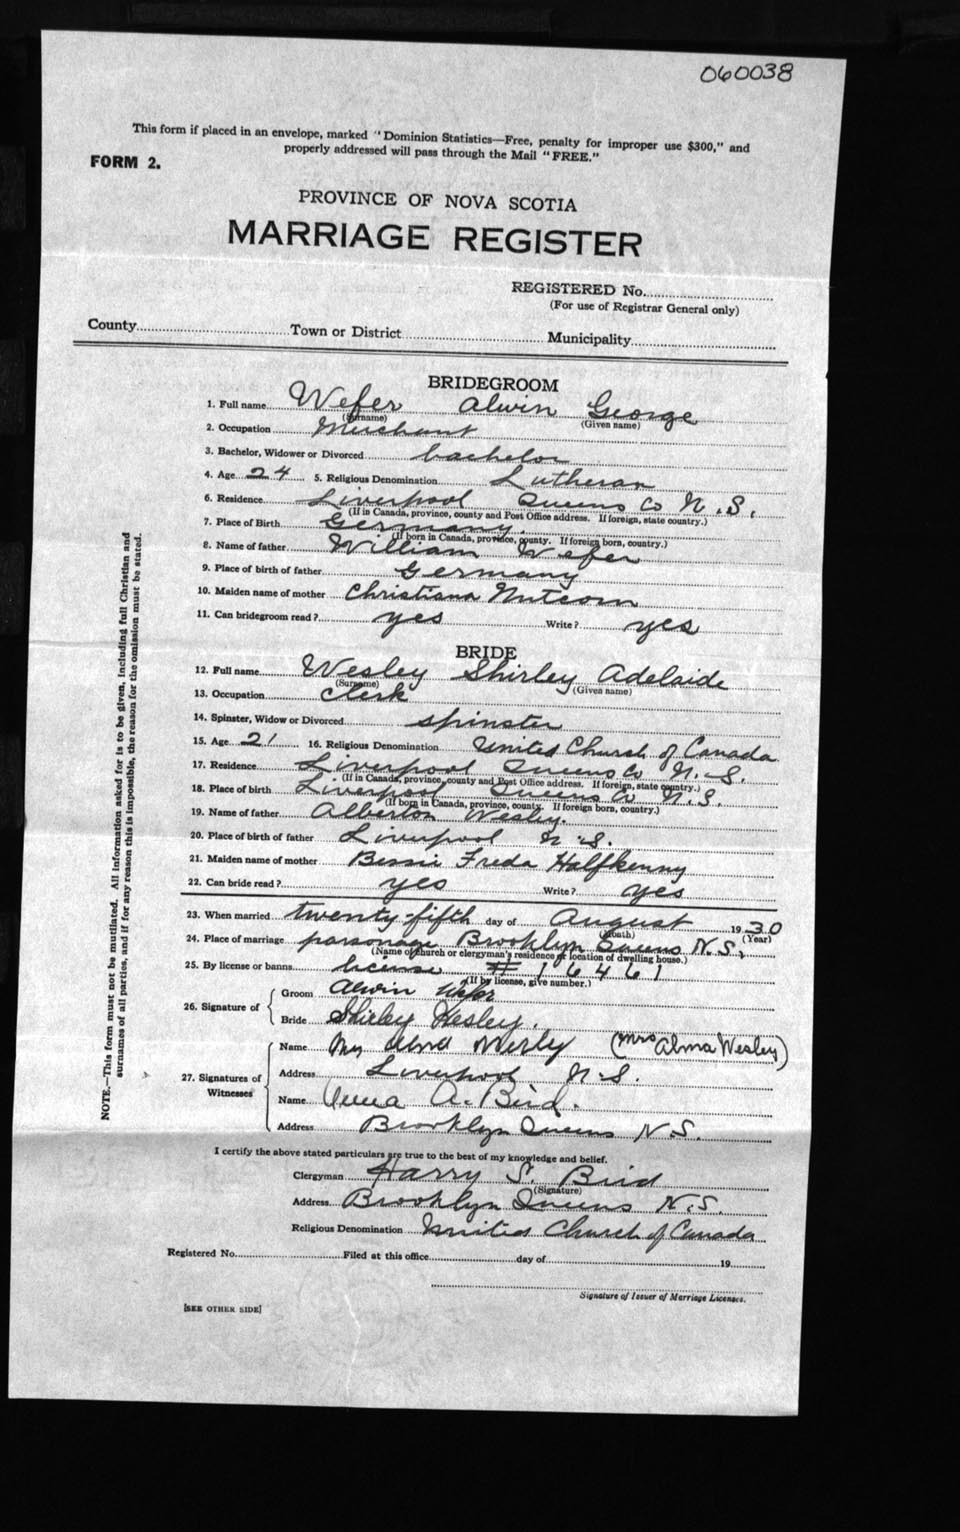 060038
This form if placed in an envelope, marked "Dominion Statistics—Free, penalty for improper use $300," and
properly addressed will pass through the Mail "FREE."
FORM 2.
PROVINCE OF NOVA SCOTIA
MARRIAGE REGISTER
REGISTERED No.
(For use of Registrar General only)
County Town or District Municipality
BRIDEGROOM
1. Full name Wefer Alwin George
(Surname) (Given name)
2. Occupation Merchant
3. Bachelor, Widower or Divorced bachelor
4. Age 24 5. Religious Denomination Lutheran
6. Residence Liverpool Queens Co N.S.
(If in Canada, province, county and Post Office address. If foreign, state country.)
7. Place of Birth Germany.
(If born in Canada, province, county. If foreign born, country.)
8. Name of father William Wefer
9. Place of birth of father Germany
10. Maiden name of mother Christiana
11. Can bridegroom read? yes Write? yes
BRIDE
12. Full name Wesley Shirley Adelaide
(Surname) (Given name)
13. Occupation Clerk
14. Spinster, Widow or Divorced spinster
15. Age 21 16. Religious Denomination United Church of Canada
17. Residence Liverpool Queens Co N.S.
(If in Canada, province, county and Post Office address. If foreign, state country.)
18. Place of birth Liverpool Queens Co N.S.
(If born in Canada, province, county. If foreign born, country.)
19. Name of father Alberton Wesley.
20. Place of birth of father Liverpool N.S.
21. Maiden name of mother Bessie Freda Halfkenny
22. Can bride read? yes Write? yes
23. When married twenty-fifth day of August 1930
(Month) (Year)
24. Place of marriage parsonage Brooklyn Queens N.S.
(Name of church or clergyman's residence or location of dwelling house.)
25. By license or banns license # 16461
(If by license, give number.)
26. Signature of Groom Alwin Wefer
Bride Shirley Wesley.
27. Signatures of Witnesses
Name Mrs Wesley (Mrs Alma Wesley)
Address Liverpool N.S.
Name Anna A. Bird.
Address Brooklyn Queens N.S.
I certify the above stated particulars are true to the best of my knowledge and belief.
Clergyman Harry S. Bird
(Signature)
Address Brooklyn Queens N.S.
Religious Denomination United Church of Canada
Registered No. Filed at this office day of 19
Signature of Issuer of Marriage Licenses.
[SEE OTHER SIDE]
NOTE.—This form must not be mutilated. All information asked for is to be given, including full Christian and
surnames of all parties, and if for any reason this is impossible, the reason for the omission must be stated.